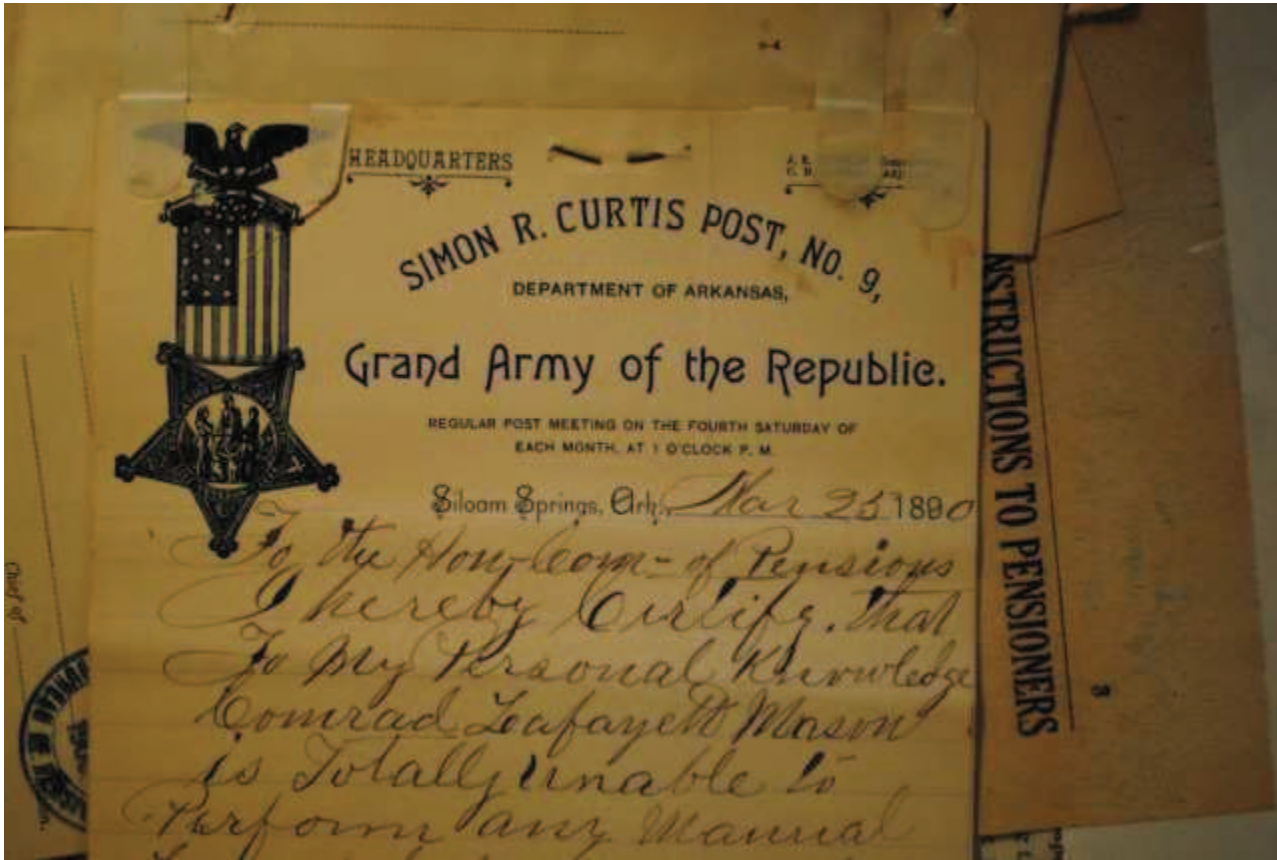 HEADQUARTERS
SIMON R. CURTIS POST, NO. 9,
DEPARTMENT OF ARKANSAS,
Grand Army of the Republic.
REGULAR POST MEETING ON THE FOURTH SATURDAY OF
EACH MONTH, AT 1 O'CLOCK P. M.
Siloam Springs, Ark., Mar 25 1890
To the Hon-Com- of Pensions
I hereby Certify. that
To My Personal Knowledge
Comrad Lafayett Mason
is Totally unable to
Perform any Manual
NSTRUCTIONS TO PENSIONERS
3
Chief of